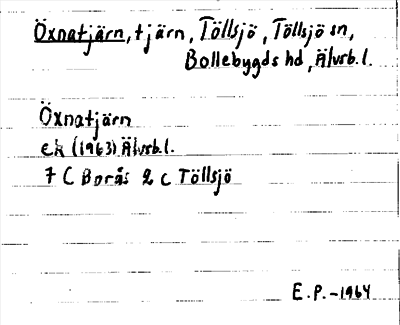 Öxnatjärn, tjärn, Töllsjö, Töllsjö sn,
Bollebygds hd, Älvsb.l.
Öxnatjärn
ek (1963) Älvsb.l.
7 C Borås 2 c Töllsjö
E.P.-1964